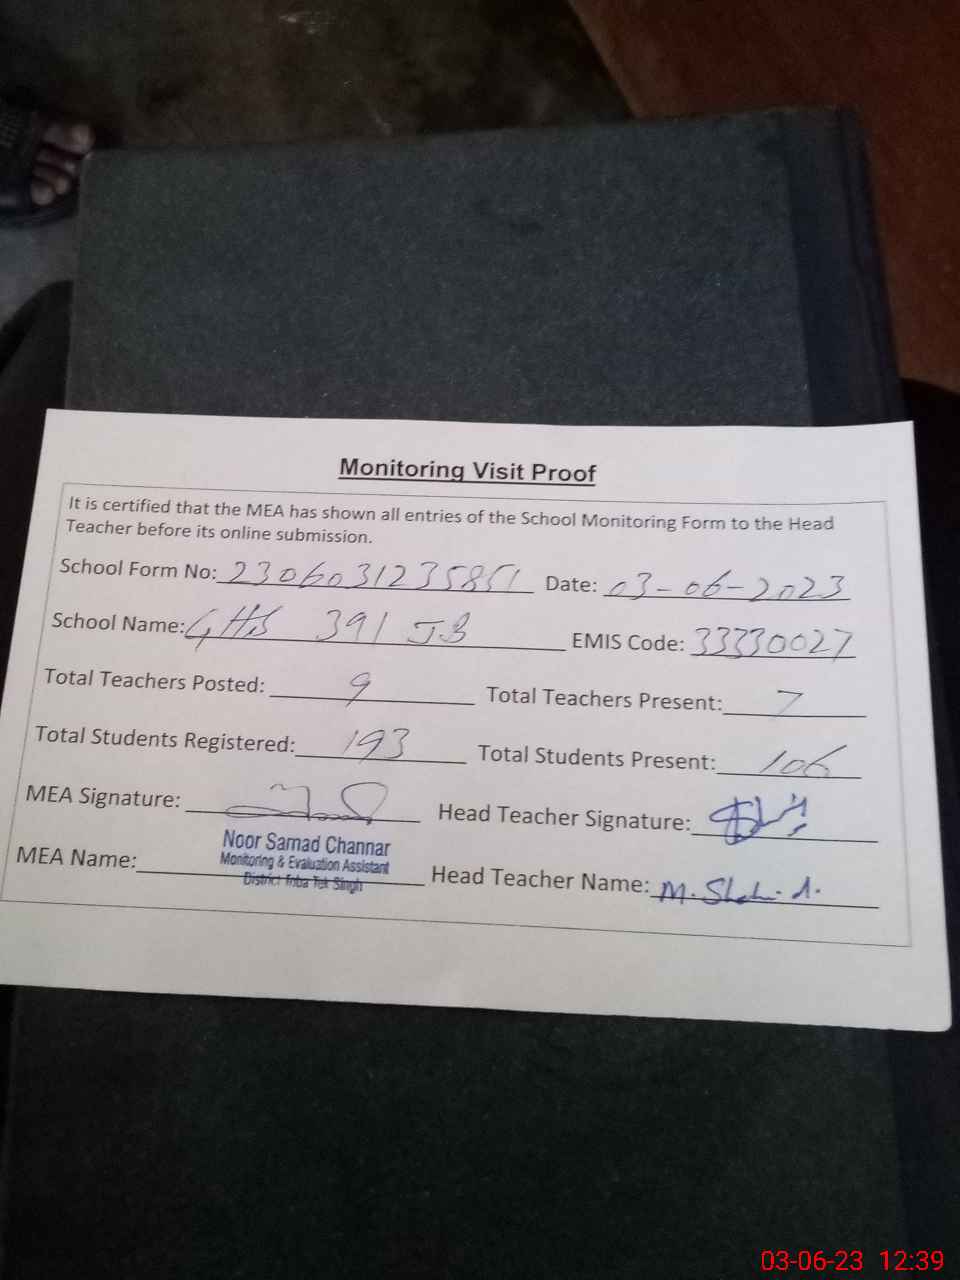 Monitoring Visit Proof
It is certified that the MEA has shown all entries of the School Monitoring Form to the Head
Teacher before its online submission.
School Form No: 2306031235851 Date: 03-06-2023
School Name: GHS 391 JB EMIS Code: 33330027
Total Teachers Posted: 9 Total Teachers Present: 7
Total Students Registered: 193 Total Students Present: 106
MEA Signature: Head Teacher Signature:
Noor Samad Channar
Monitoring & Evaluation Assistant
District Toba Tek Singh
MEA Name: Head Teacher Name: M. Shahid.
03-06-23 12:39